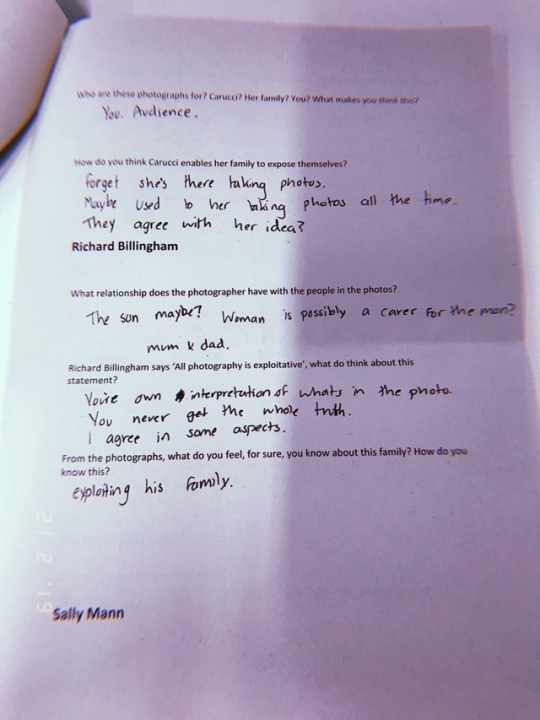 Who are these photographs for? Carucci? Her family? You? What makes you think this?
You. Audience.
How do you think Carucci enables her family to expose themselves?
forget she's there taking photos.
Maybe used to her taking photos all the time.
They agree with her idea?
Richard Billingham
What relationship does the photographer have with the people in the photos?
The son maybe? Woman is possibly a carer for the man?
mum & dad.
Richard Billingham says 'All photography is exploitative', what do think about this
statement?
You're own interpretation of whats in the photo.
You never get the whole truth.
I agree in some aspects.
From the photographs, what do you feel, for sure, you know about this family? How do you
know this?
exploiting his family.
Sally Mann
21 2 '19